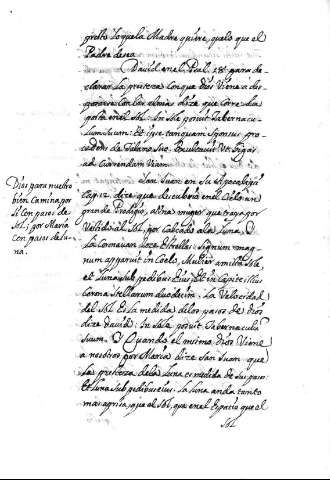 presto loquela Madre quiere, quelo que el
Padre desea.
David en el Psal. 18. para de-
clarar la presteza con que Dios Viene a dis-
las almas dize que corre
en el Sol: In sole posuit Taberna-
culum Suum: Et ipse tanquam Sponsus pro-
cedens de Talamo Suo. Exultauit Vt Gigas
ad Currendam Viam.
San Juan en Su Apocalipsi
Cap. 12. dize que descubrio en el Cielo un
grande Prodigio, a Una muger que traya por
Vestido al Sol, por calçado a la Luna, y
la Coronauan doze Estrellas: Signum mag-
num apparuit in Coelo, Mulier amicta Sole,
et Luna sub pedibus Eius, Et in Capite illius
Corona Stellarum duodecim: La Velozidad
del Sol Es la medida delos pasos de Dios
dize dauid: In Sole posuit Tabernaculum
Suum. Y Quando el mismo Dios Viene
a nosotros por Maria dize San Juan que
las presteza dela Luna es medida de sus pasos
Et Luna Sub pedibus eius. La Luna anda tanto
mas aprisa, que al Sol, que en el Espacio que el
Sol
Dios para nuestro
bien Camina por
Si con pasos de
Sol, y por Maria
Con pasos de Lu-
na.